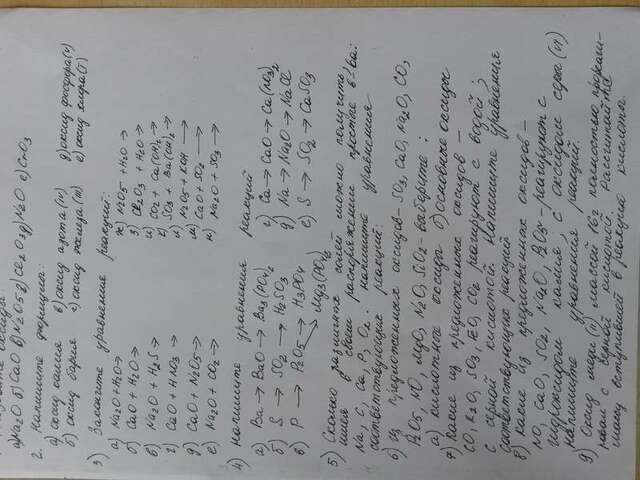 оксиды
а) Na2O б) CaO в) N2O5 г) Cl2O3 д) N2O е) CrO3
2. Напишите формулы:
а) оксид калия в) оксид азота (IV) д) оксид фосфора (V)
б) оксид бария г) оксид железа (III) е) оксид хлора (I)
3) Закончите уравнения реакций:
а) Na2O + H2O →
б) CaO + H2O →
в) Na2O + H2S →
г) CaO + HNO3 →
д) CaO + N2O5 →
е) Na2O + CO2 →
ж) N2O5 + H2O →
з) Cl2O3 + H2O →
и) CO2 + Ca(OH)2 →
к) SO3 + Ba(OH)2 →
л) N2O5 + KOH →
м) CaO + SO2 →
н) Na2O + SO3 →
4) Напишите уравнения реакций
а) Ba → BaO → Ba3(PO4)2
б) S → SO2 → H2SO3
в) P → P2O5 → H3PO4
Mg3(PO4)2
г) Ca → CaO → Ca(NO3)2
д) Na → Na2O → NaCl
е) S → SO2 → CaSO3
5) Сколько различных солей можно получить,
имея в своем распоряжении простые в-ва:
Na, C, Ca, P, O2. Напишите уравнения
соответствующих реакций.
6) Из предложенных оксидов - SO3, CaO, Na2O, CO,
P2O5, NO, MgO, N2O, SiO2 - выберите:
а) кислотные оксиды б) основные оксиды
7) Какие из предложенных оксидов -
CO, K2O, SO3, FeO, CO2 реагируют с водой;
с серной кислотой. Напишите уравнения
соответствующих реакций
8) Какие из предложенных оксидов -
NO, CaO, SO2, Na2O, P2O5 - реагируют с
гидроксидом калия, с оксидом серы (VI)
Напишите уравнения реакций.
9) Оксид меди (II) массой 16г полностью прореаги-
ровал с серной кислотой. Рассчитайте
массу вступившей в реакцию кислоты.